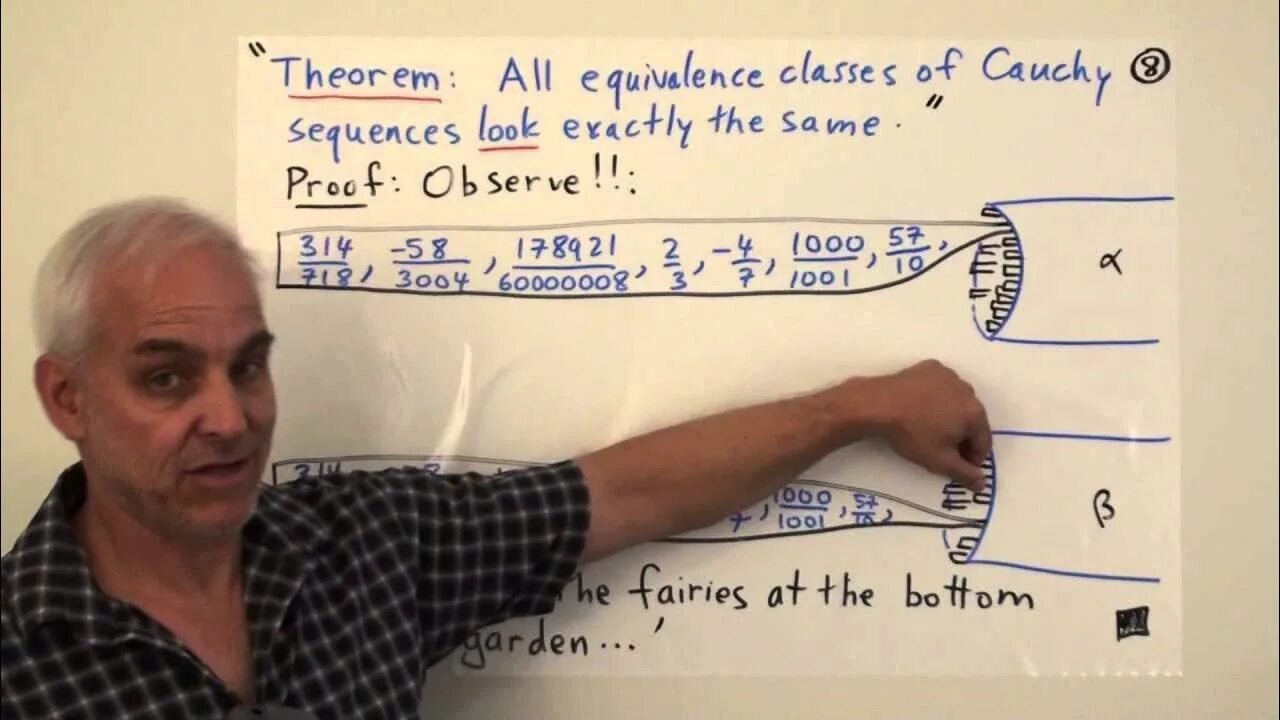 "Theorem: All equivalence classes of Cauchy ⑧
sequences look exactly the same."
Proof: Observe!!:
314/718, -58/3004, 178921/60000008, 2/3, -4/7, 1000/1001, 57/10,
α
314 8 7, 1000/1001, 57/10,
β
the fairies at the bottom
garden...'